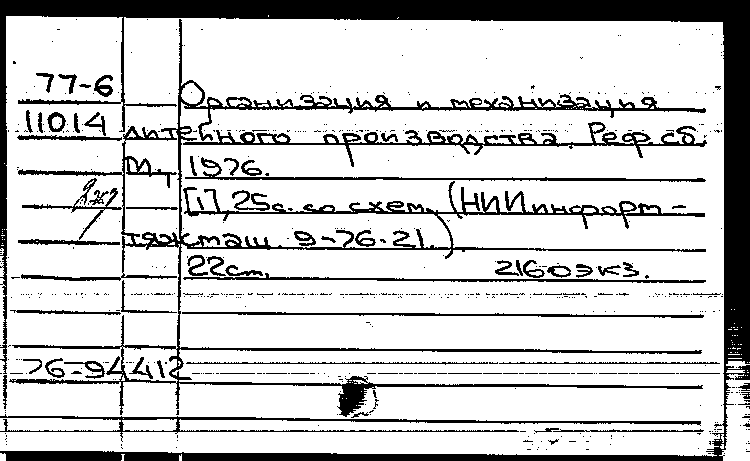 77-6
Организация и механизация
11014 литейного производства. Реф. сб.
М., 1976.
[1], 25 с. со схем. (НИИинформ-
тяжмаш 9-76-21.)
22 см. 2160 экз.
76-94412